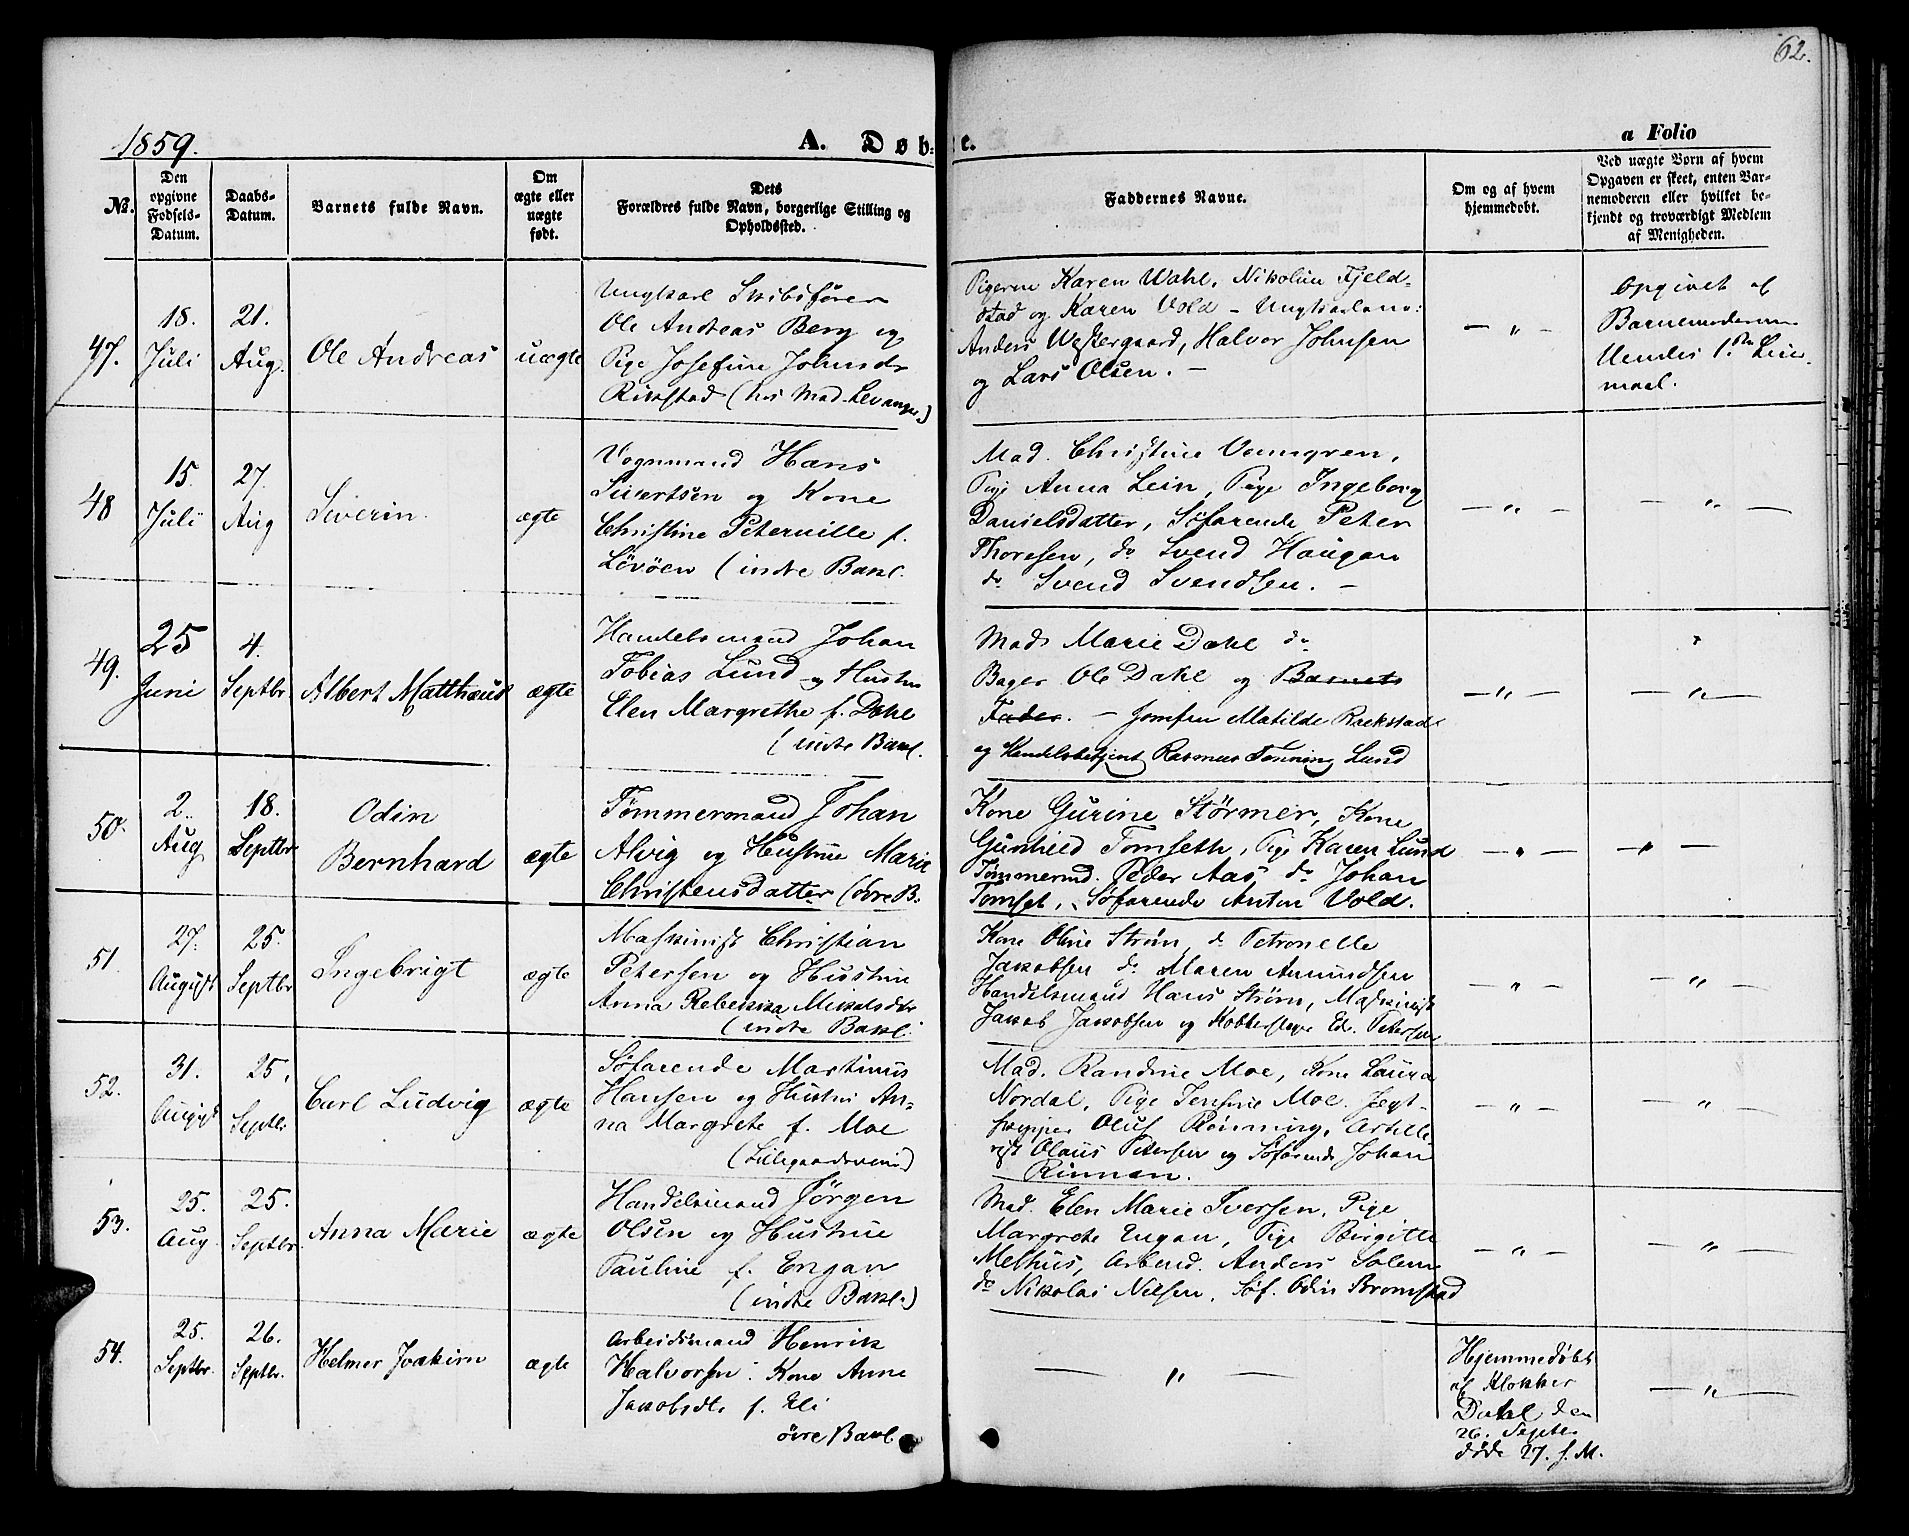 62.
1859.
A. Døb-
e.
a Folio
No.
Den
opgivne
Fødsels-
Datum.
Daabs-
Datum.
Barnets fulde Navn.
Om
ægte eller
uægte
født.
Dets
Forældres fulde Navn, borgerlige Stilling og
Opholdssted.
Faddernes Navne.
Om og af hvem
hjemmedøbt.
Ved uægte Børn af hvem
Opgaven er skeet, enten Bar-
nemoderen eller hvilket be-
kjendt og troværdigt Medlem
af Menigheden.
47.
18.
Juli
21.
Aug.
Ole Andreas
uægte
Ungkarl Skibsfører
Ole Andreas Berg og
Pige Josefine Johnsdr
Rikstad (hos Mad. Levanger)
Pigerne Karen Wahl, Nikoline Fjeld-
stad og Karen Vold – Ungkarlene:
Anders Westergaard, Halvor Johnsen
og Lars Olsen. –
– " –
Opgivet af
Barnemoderen
Hendes 1. Leier-
maal.
48
15.
Juli
27.
Aug
Siverin.
ægte
Vognmand Hans
Sivertsen og Kone
Christine Peternille f.
Lövöen (indre Bakl.
Mad. Christine Venngren,
Pige Anna Lein, Pige Ingeborg
Danielsdatter, Søfarende Peter
Thoresen, do Svend Haugan
do Svend Svendsen. –
– " –
– " –
49.
25
Juni
4.
Septbr.
Albert Matthæus
ægte
Handelsmand Johan
Tobias Lund og Hustru
Elen Margrethe f. Dahl
(indre Bakl.
Mads Marie Dahl do
Bager Ole Dahl og Barnets
Fader. – Jomfru Matilde Rackstad
og Handelsbetjent Rasmus Tønning Lund
– " –
– " –
50.
2.
Aug
18.
Septbr
Odin
Bernhard
ægte
Tømmermand Johan
Alvig og Hustrue Marie
Christensdatter (övre B.
Kone Gurine Störmer, Kone
Gunhild Tomseth, Pige Karen Lund
Tømmermd. Peder Aas do Johan
Tomset, Søfarende Anton Vold.
– " –
– " –
51.
27.
August
25.
Septbr
Ingebrigt
ægte
Maskinist Christian
Petersen og Hustrue
Anna Rebekka Mikalsdtr
(indre Bakl.
Kone Oline Strøm, do Petronelle
Jakobsen do Maren Amundsen
Handelsmand Hans Strøm, Maskinist
Jakob Jakobsen og Kobberslager Ed. Petersen
– " –
– " –
52.
31.
August
25.
Septbr.
Carl Ludvig
ægte
Søfarende Martinus
Hansen og Hustru An-
na Margrete f. Moe
(Lillegaardsveni)
Mad. Randine Moe, Kone Laura
Nordal, Pige Jensine Moe. Jægt-
skipper Oluf Rönning, Artille-
rist Olaus Petersen og Søfarende Johan
Rinnan.
– " –
– " –
53.
25.
Aug
25.
Septbr.
Anna Marie
ægte
Handelsmand Jörgen
Olsen og Hustrue
Pauline f. Engan
(indre Bakl.)
Mad. Elen Marie Iversen, Pige
Margrete Engan, Pige Birgitte
Melhus, Arbmd. Anders Solem
do Nikolai Nilsen, Søf. Odin Bromstad
– " –
– " –
54.
25.
Septbr.
26.
Septbr.
Helmer Joakim
ægte
Arbeidsmand Henrik
Halvorsen: Kone Anne
Jakobsdtr f. Eli
övre Bakl.
– " –
Hjemmedøbt
af Klokker
Dahl den
26. Septr.
døde 27. s. M.
– " –